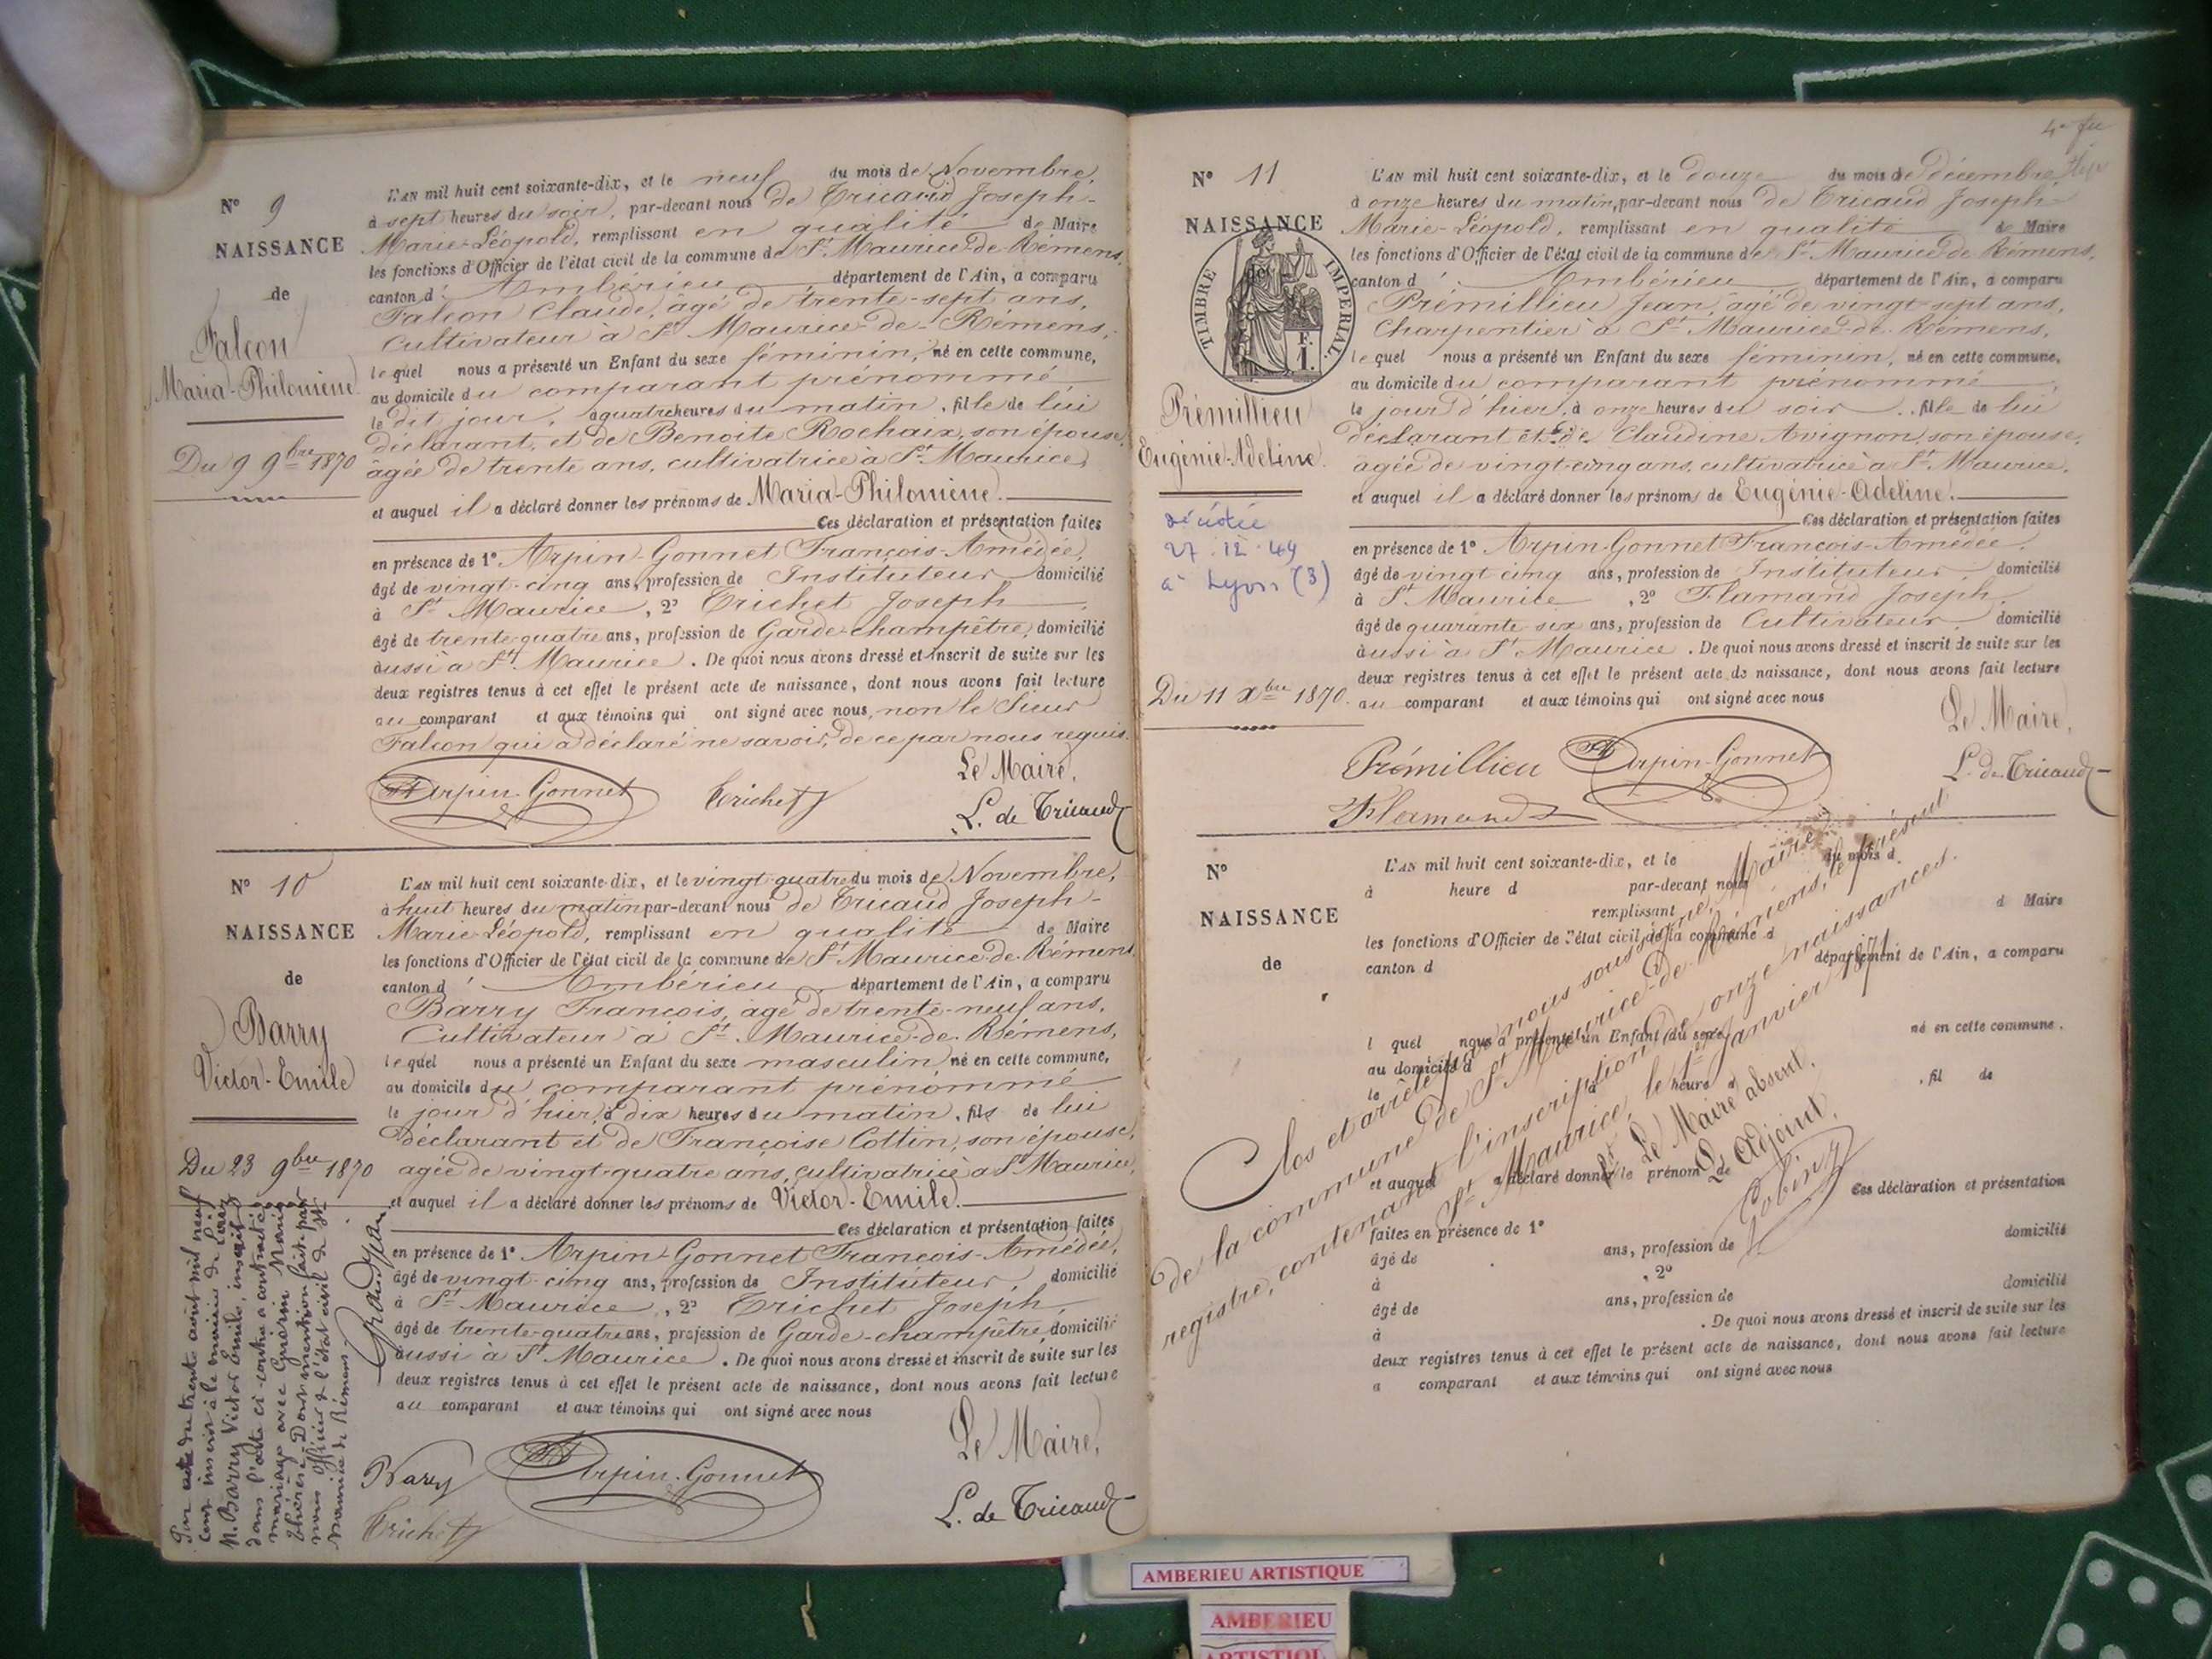 N° 9
NAISSANCE
de
Falcon
Maria-Philomène
Du 9 9bre 1870
L'AN mil huit cent soixante-dix, et le neuf du mois de Novembre,
à sept heures du soir, par-devant nous de Tricaud Joseph-
Marie-Léopold, remplissant en qualité de Maire
les fonctions d'Officier de l'état civil de la commune de St Maurice-de-Rémens,
canton d'Ambérieu, département de l'Ain, a comparu
Falcon Claude, âgé de trente-sept ans,
Cultivateur à St Maurice-de-Rémens,
lequel nous a présenté un Enfant du sexe féminin, né en cette commune,
au domicile du comparant prénommé,
le dit jour, à quatre heures du matin, fille de lui
déclarant, et de Benoite Rochaix, son épouse,
âgée de trente ans, cultivatrice à St Maurice,
et auquel il a déclaré donner les prénoms de Maria-Philomène.
Ces déclaration et présentation faites
en présence de 1° Arpin-Gonnet François-Amédée,
âgé de vingt-cinq ans, profession de Instituteur, domicilié
à St Maurice, 2° Trichet Joseph,
âgé de trente-quatre ans, profession de Garde-champêtre, domicilié
aussi à St Maurice. De quoi nous avons dressé et inscrit de suite sur les
deux registres tenus à cet effet le présent acte de naissance, dont nous avons fait lecture
au comparant et aux témoins qui ont signé avec nous, non le Sieur
Falcon qui a déclaré ne savoir, de ce par nous requis.
Le Maire,
Arpin-Gonnet Trichet L. de Tricaud
N° 10
NAISSANCE
de
Barry
Victor-Emile
Du 23 9bre 1870
L'AN mil huit cent soixante-dix, et le vingt-quatre du mois de Novembre,
à huit heures du matin par-devant nous de Tricaud Joseph-
Marie-Léopold, remplissant en qualité de Maire
les fonctions d'Officier de l'état civil de la commune de St Maurice-de-Rémens
canton d'Ambérieu, département de l'Ain, a comparu
Barry François, âgé de trente-neuf ans,
Cultivateur à St Maurice-de-Rémens,
lequel nous a présenté un Enfant du sexe masculin, né en cette commune,
au domicile du comparant prénommé
le jour d'hier, à dix heures du matin, fils de lui
déclarant et de Françoise Cottin, son épouse,
âgée de vingt-quatre ans, cultivatrice à St Maurice,
et auquel il a déclaré donner les prénoms de Victor-Emile.
Ces déclaration et présentation faites
en présence de 1° Arpin-Gonnet François-Amédée,
âgé de vingt-cinq ans, profession de Instituteur, domicilié
à St Maurice, 2° Trichet Joseph,
âgé de trente-quatre ans, profession de Garde-champêtre, domicilié
aussi à St Maurice. De quoi nous avons dressé et inscrit de suite sur les
deux registres tenus à cet effet le présent acte de naissance, dont nous avons fait lecture
au comparant et aux témoins qui ont signé avec nous
Le Maire,
Barry Arpin-Gonnet
Trichet L. de Tricaud
Par acte du trente août mil neuf
cent inscrit à la mairie de
M. Barry Victor Emile, inscrit
dans l'acte ci-contre a contracté
mariage avec Guérin Marie
Thérèse. Dont mention faite par
nous officier de l'état civil de St
Maurice de Rémens.
Grandjean
N° 11
NAISSANCE
de
TIMBRE IMPERIAL.
F.
1.
Prémillieu
Eugénie-Adeline
décédée
27.12.49
à Lyon (3)
Du 11 Xbre 1870.
L'AN mil huit cent soixante-dix, et le douze du mois de décembre
à onze heures du matin, par-devant nous de Tricaud Joseph-
Marie-Léopold, remplissant en qualité de Maire
les fonctions d'Officier de l'état civil de la commune de St Maurice-de-Rémens,
canton d'Ambérieu, département de l'Ain, a comparu
Prémillieu Jean, âgé de vingt-sept ans,
Charpentier à St Maurice-de-Rémens,
lequel nous a présenté un Enfant du sexe féminin, né en cette commune,
au domicile du comparant prénommé,
le jour d'hier, à onze heures du soir, fille de lui
déclarant et de Claudine Avignon, son épouse,
âgée de vingt-cinq ans, cultivatrice à St Maurice,
et auquel il a déclaré donner les prénoms de Eugénie-Adeline.
Ces déclaration et présentation faites
en présence de 1° Arpin-Gonnet François-Amédée,
âgé de vingt cinq ans, profession de Instituteur, domicilié
à St Maurice, 2° Flamand Joseph,
âgé de quarante six ans, profession de Cultivateur, domicilié
aussi à St Maurice. De quoi nous avons dressé et inscrit de suite sur les
deux registres tenus à cet effet le présent acte de naissance, dont nous avons fait lecture
au comparant et aux témoins qui ont signé avec nous
Le Maire,
Prémillieu Arpin-Gonnet L. de Tricaud
Flamand
N°
NAISSANCE
de
L'AN mil huit cent soixante-dix, et le du mois d
à heure d par-devant nous
remplissant d Maire
les fonctions d'Officier de l'état civil de la commune d
canton d département de l'Ain, a comparu
l quel nous a présenté un Enfant du sexe né en cette commune,
au domicile d
le à heure d , fil de
et auquel a déclaré donner le prénom de
Ces déclaration et présentation
faites en présence de 1°
âgé de ans, profession de domicilié
à , 2°
âgé de ans, profession de domicilié
à . De quoi nous avons dressé et inscrit de suite sur les
deux registres tenus à cet effet le présent acte de naissance, dont nous avons fait lecture
a comparant et aux témoins qui ont signé avec nous
Clos et arrêté par nous soussigné, Maire
de la commune de St Maurice-de-Rémens, le présent
registre, contenant l'inscription de onze naissances.
St Maurice, le 1er Janvier 1871
Pr Le Maire absent,
L'Adjoint,
Gobin
AMBERIEU ARTISTIQUE
AMBERIEU
ARTISTIQU